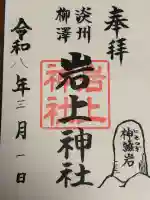 奉拝
淡州
柳澤
岩上神社
岩上
神社
神籬岩
令和八年三月一日